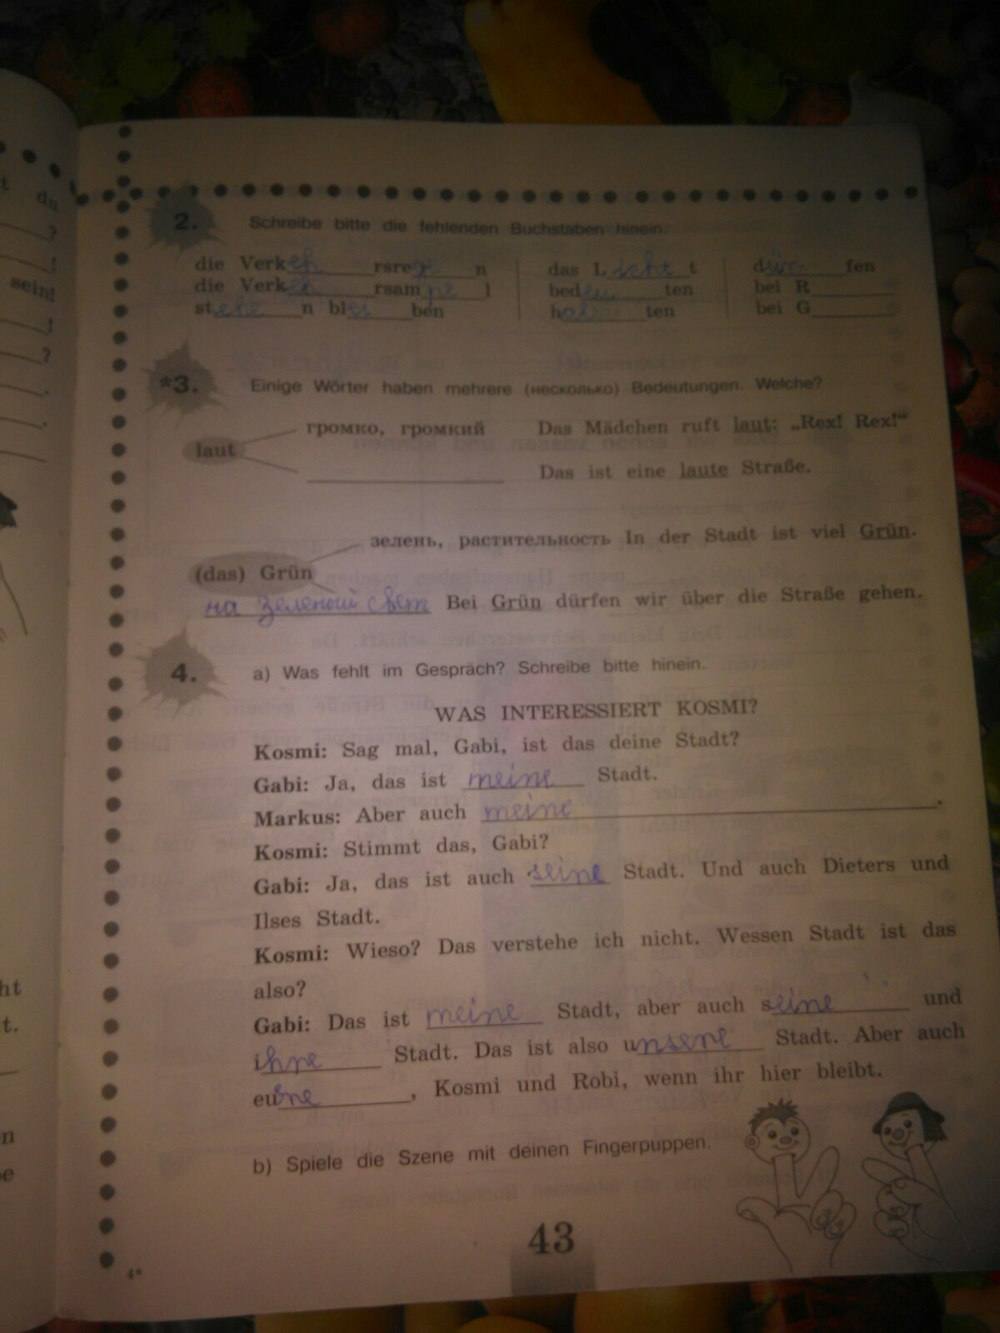 t du
?
!
sein!
!
?
.
.
ht
t.
n
2. Schreibe bitte die fehlenden Buchstaben hinein.
die Verkeh rsre n das L icht t dür fen
die Verk eh rsam pe l bed eu ten bei R
st ehe n bl ei ben h al ten bei G
*3. Einige Wörter haben mehrere (несколько) Bedeutungen. Welche?
громко, громкий Das Mädchen ruft laut: „Rex! Rex!“
laut
Das ist eine laute Straße.
зелень, растительность In der Stadt ist viel Grün.
(das) Grün
на зеленый свет Bei Grün dürfen wir über die Straße gehen.
4. a) Was fehlt im Gespräch? Schreibe bitte hinein.
WAS INTERESSIERT KOSMI?
Kosmi: Sag mal, Gabi, ist das deine Stadt?
Gabi: Ja, das ist meine Stadt.
Markus: Aber auch meine .
Kosmi: Stimmt das, Gabi?
Gabi: Ja, das ist auch seine Stadt. Und auch Dieters und
Ilses Stadt.
Kosmi: Wieso? Das verstehe ich nicht. Wessen Stadt ist das
also?
Gabi: Das ist meine Stadt, aber auch seine und
ihne Stadt. Das ist also unsene Stadt. Aber auch
eune , Kosmi und Robi, wenn ihr hier bleibt.
b) Spiele die Szene mit deinen Fingerpuppen.
43
4*